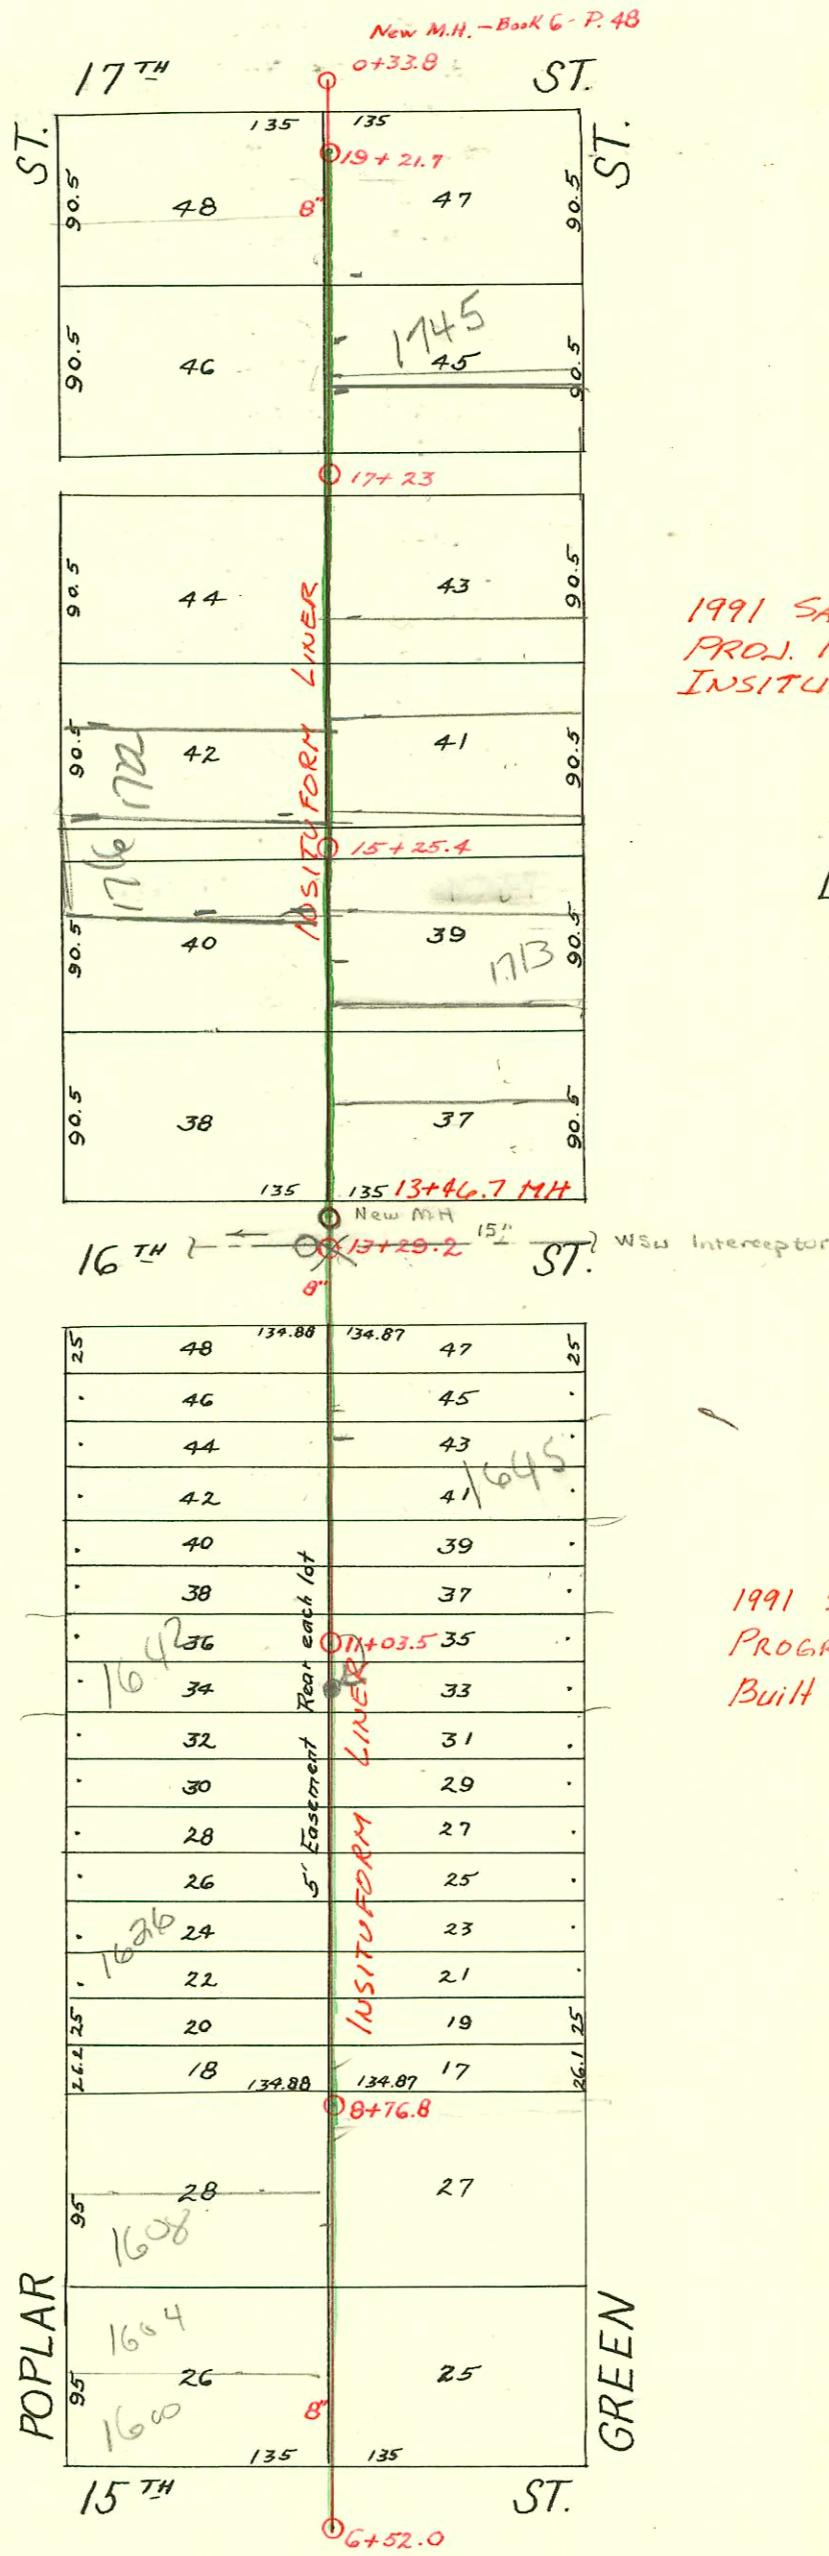 New M.H. - Book 6 - P. 48
0+33.8
17 TH ST.
ST. ST.
135 135
19 + 21.7
90.5 48 8" 47 90.5
1745
90.5 46 45 90.5
17+ 23
90.5 44 43 90.5
INSITUFORM LINER
1991
PROJ.
90.5 42 41 90.5
1722
15+25.4
1716
90.5 40 39 90.5
1713
90.5 38 37 90.5
135 135 13+46.7 MH
New MH
16 TH 13+29.2 15" ST. WSW Interceptor
8"
134.88 134.87
25 48 47 25
46 45
44 43
1645
42 41
40 39
38 37
36 11+03.5 35
1642
34 33
32 31
30 29
28 27
26 25
24 23
1626
22 21
25 20 19 25
26.2 18 17 26.1
134.88 134.87
5' Easement Rear each lot
INSITUFORM LINER
1991
Built
8+76.8
95 28 27
1608
1604
95 26 25
1600
8"
135 135
POPLAR GREEN
15 TH ST.
6+52.0